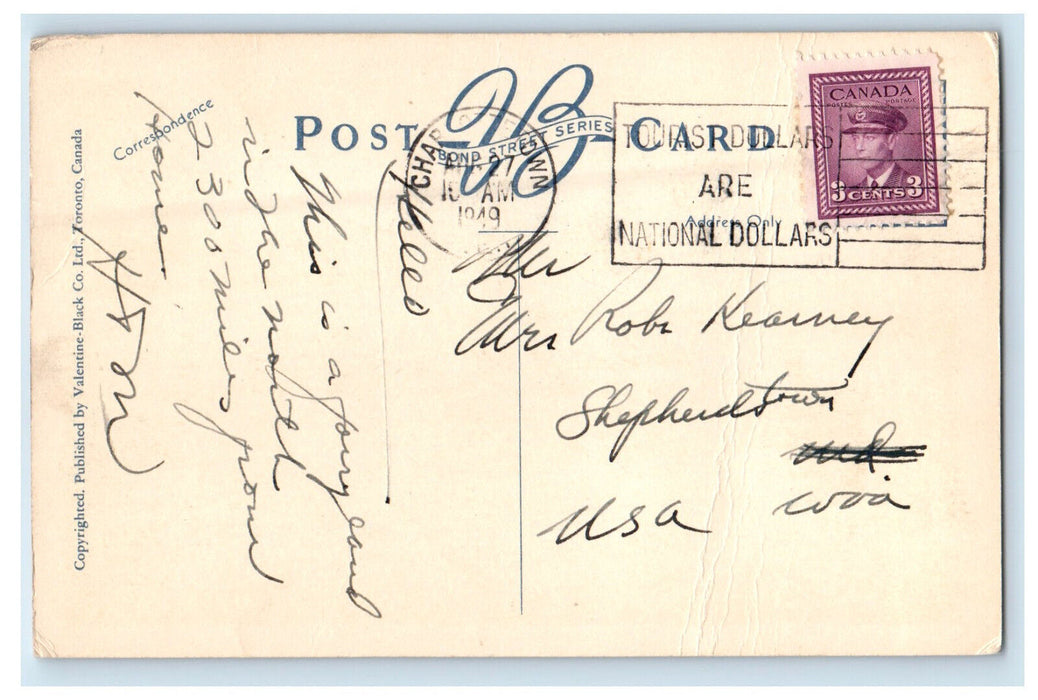 POST CARD
VB
BOND STREET SERIES
Correspondence
Address Only
CANADA
POSTES POSTAGE
3 CENTS 3
27
10 AM
1949
TOURIST DOLLARS
ARE
NATIONAL DOLLARS
Hello
This is a
in the north
2 300 miles from
home
Mr
Mrs Robt Kearney
Shepherdstown
Md
USA WVa
Copyrighted. Published by Valentine-Black Co. Ltd., Toronto, Canada